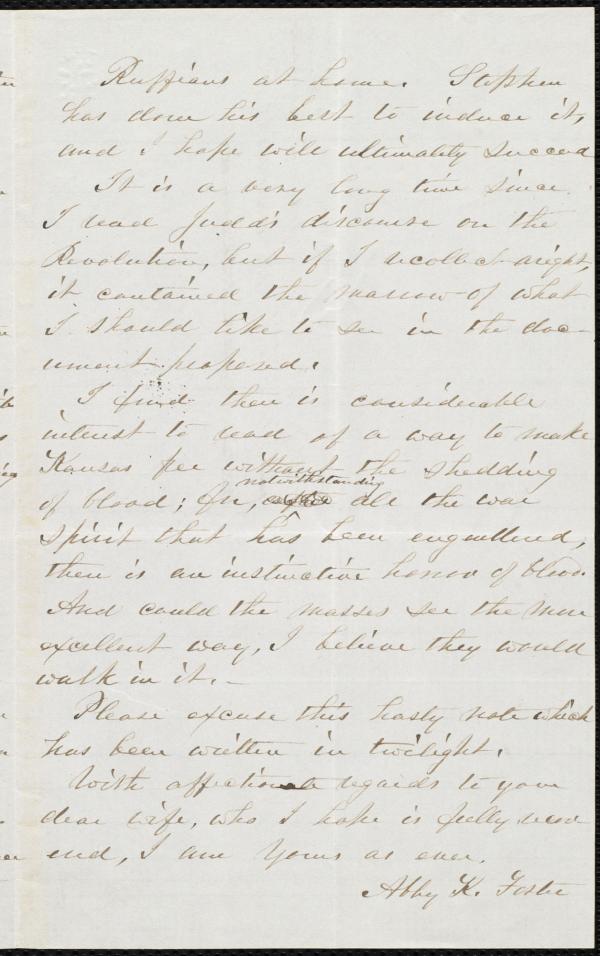 Ruffians at home. Stephen
has done his best to induce it,
and I hope will ultimately succeed
It is a very long time since
I read Judd's discourse on the
Revolution, but if I recollect aright,
it contained the marrow of what
I should like to see in the doc-
ument proposed.
I find there is considerable
interest to read of a way to make
Kansas free without the shedding
notwithstanding
of blood; for, all the war
spirit that has been engendered,
there is an instinctive horror of blood.
And could the masses see the more
excellent way, I believe they would
walk in it. –
Please excuse this hasty note which
has been written in twilight.
With affectionate regards to your
dear wife, who I hope is fully recov
ered, I am yours as ever.
Abby K. Foster